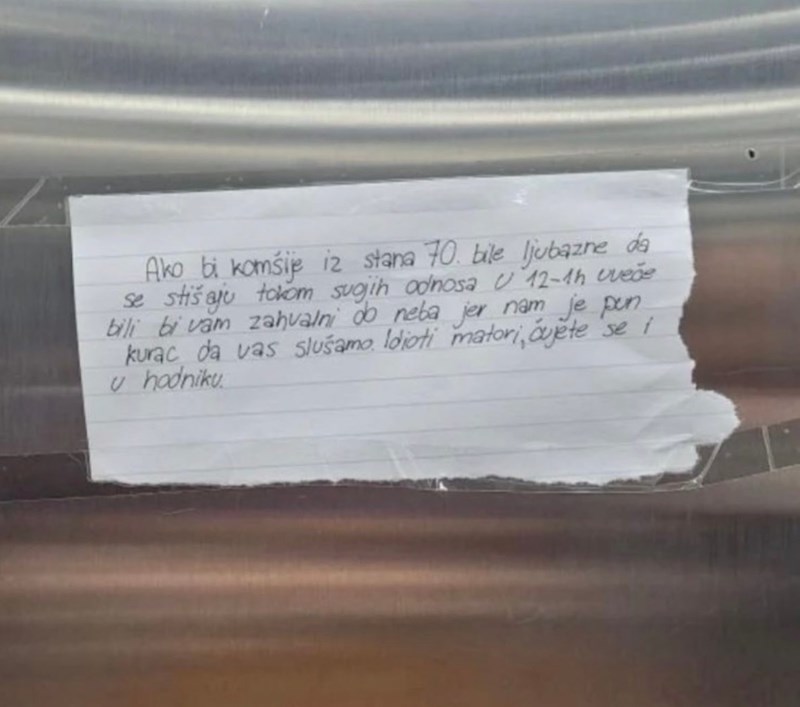 Ako bi komšije iz stana 70. bile ljubazne da
se stišaju tokom svojih odnosa U 12-1h uveče
bili bi vam zahvalni do neba jer nam je pun
kurac da vas slušamo. Idioti matori, čujete se i
u hodniku.